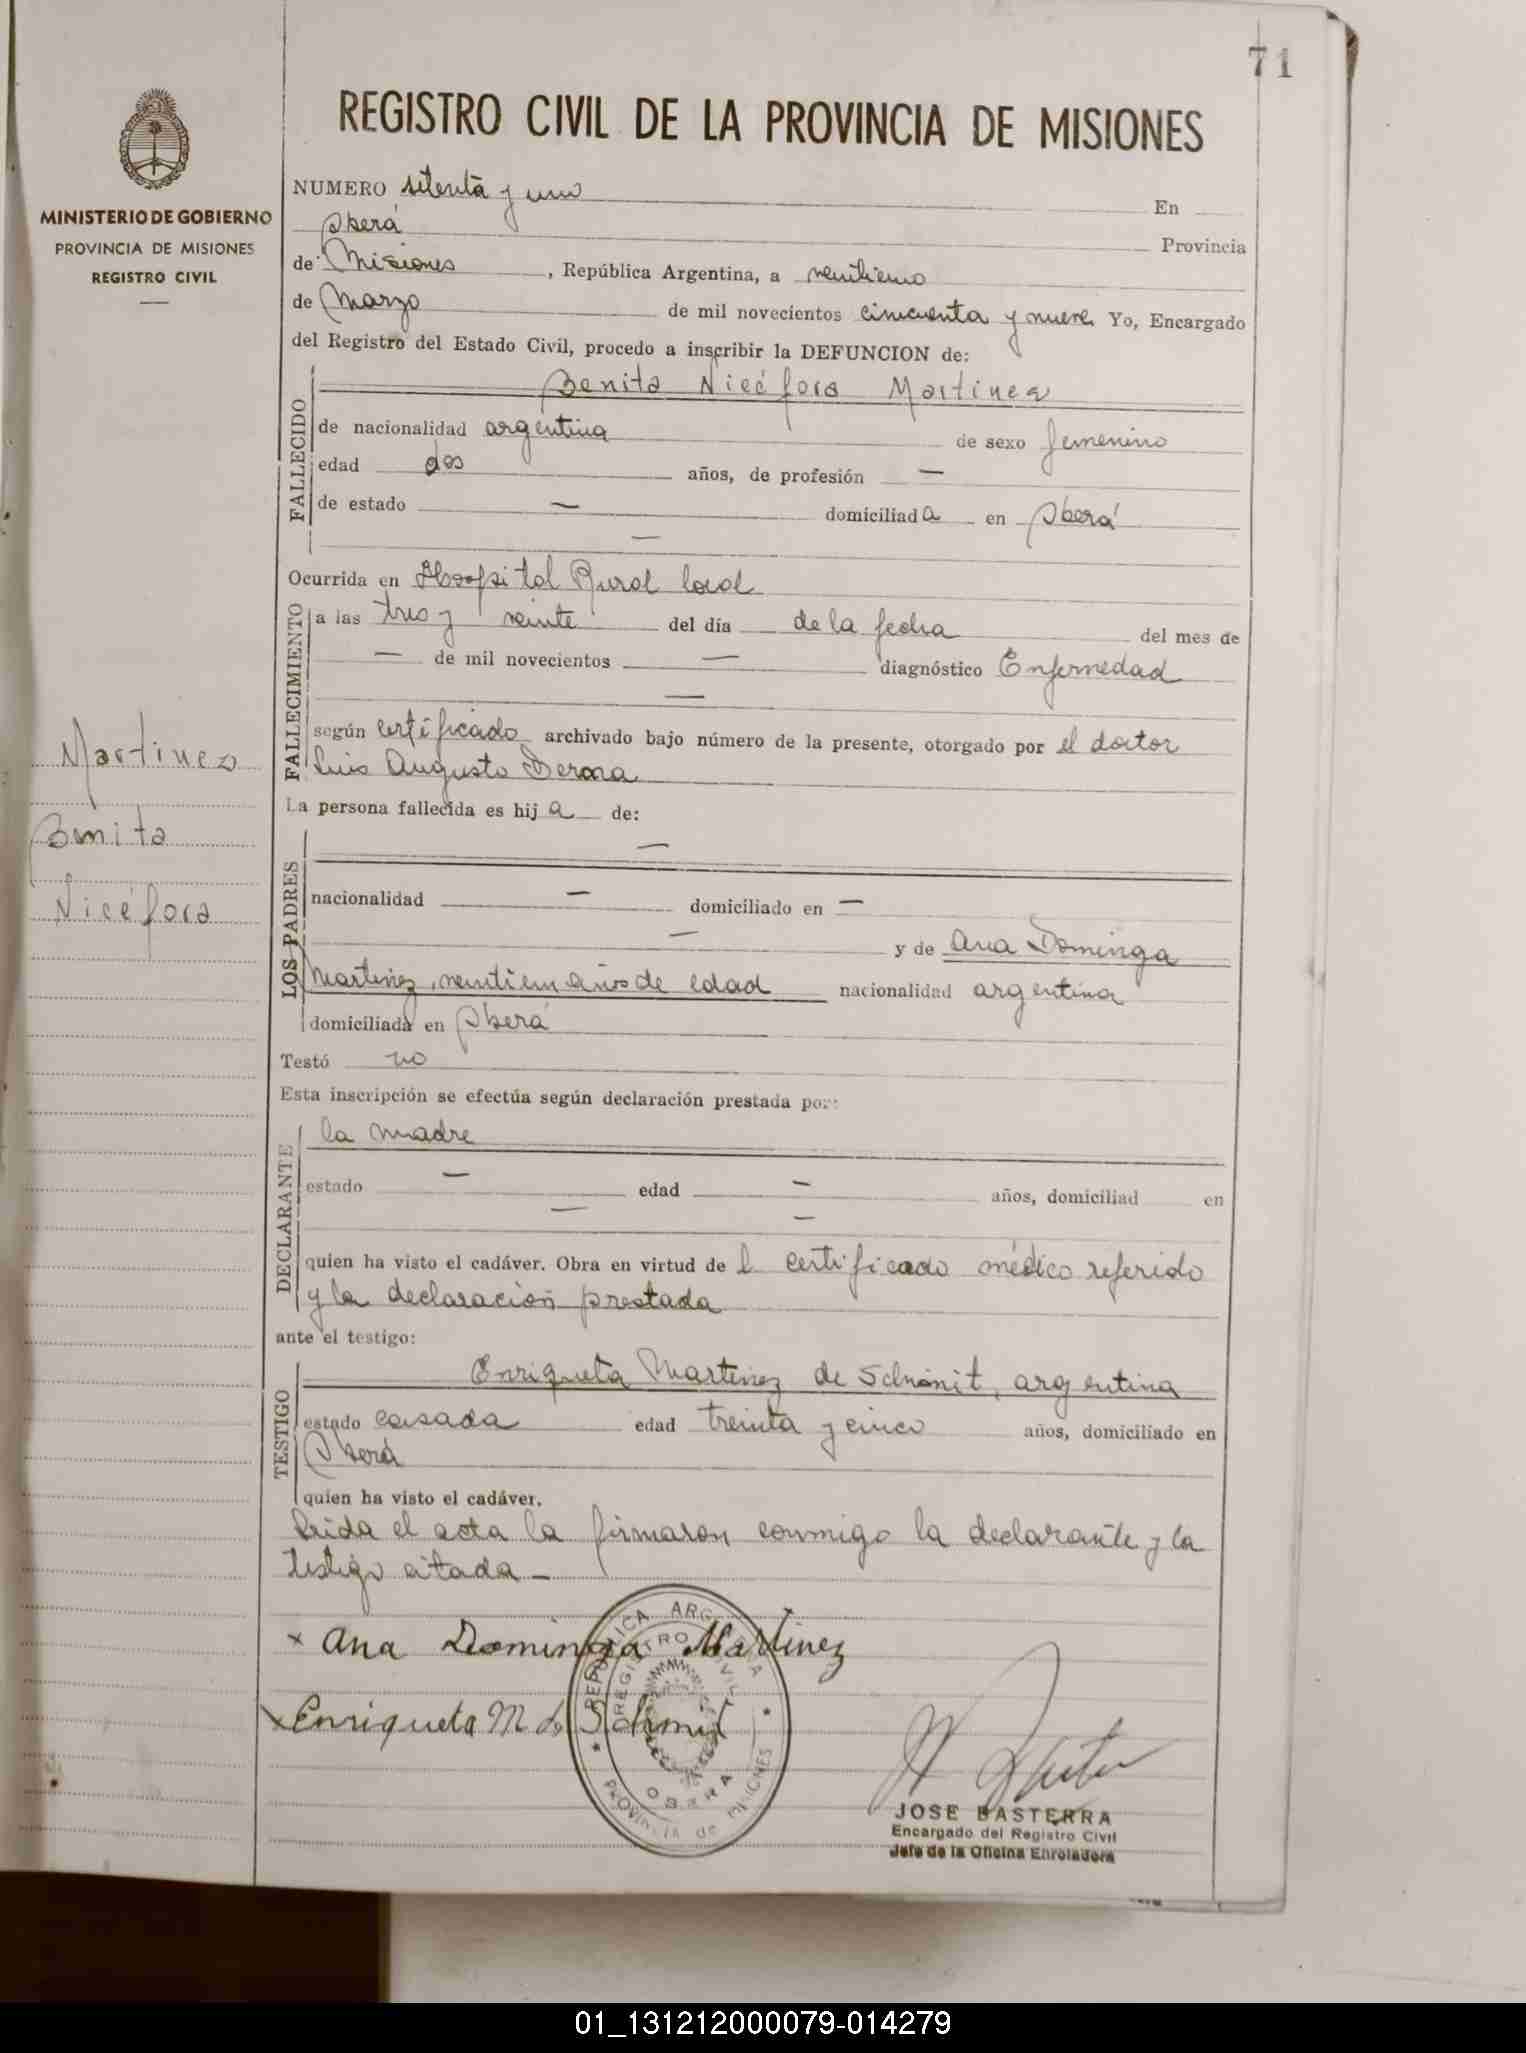 71
REGISTRO CIVIL DE LA PROVINCIA DE MISIONES
MINISTERIO DE GOBIERNO
PROVINCIA DE MISIONES
REGISTRO CIVIL
NUMERO setenta y uno En
Oberá Provincia
de Misiones, República Argentina, a veintiuno
de Marzo de mil novecientos cincuenta y nueve Yo, Encargado
del Registro del Estado Civil, procedo a inscribir la DEFUNCION de:
FALLECIDO
Benita Nicéfora Martinez
de nacionalidad argentina de sexo femenino
edad dos años, de profesión —
de estado — domiciliada en Oberá
—
Ocurrida en Hospital Rural local
FALLECIMIENTO
a las tres y veinte del día de la fecha del mes de
— de mil novecientos — diagnóstico Enfermedad
—
según certificado archivado bajo número de la presente, otorgado por el doctor
Luis Augusto
La persona fallecida es hija de:
LOS PADRES
—
nacionalidad — domiciliado en —
— y de Ana Dominga
Martinez, veintiun años de edad nacionalidad argentina
domiciliada en Oberá
Testó no
Esta inscripción se efectúa según declaración prestada por:
DECLARANTE
la madre
estado — edad — años, domiciliad en
— —
quien ha visto el cadáver. Obra en virtud de l certificado médico referido
y la declaración prestada
ante el testigo:
TESTIGO
Enriqueta Martinez de Schmit, argentina
estado casada edad treinta y cinco años, domiciliado en
Oberá
quien ha visto el cadáver.
Leida el acta la firmaron conmigo la declarante y la
testigo citada —
x Ana Dominga Martinez
x Enriqueta M de Schmit
REPUBLICA ARGENTINA
REGISTRO CIVIL
OBERA
PROVINCIA de MISIONES
JOSE BASTERRA
Encargado del Registro Civil
Jefe de la Oficina Enroladora
Martinez
Benita
Nicéfora
01_131212000079-014279